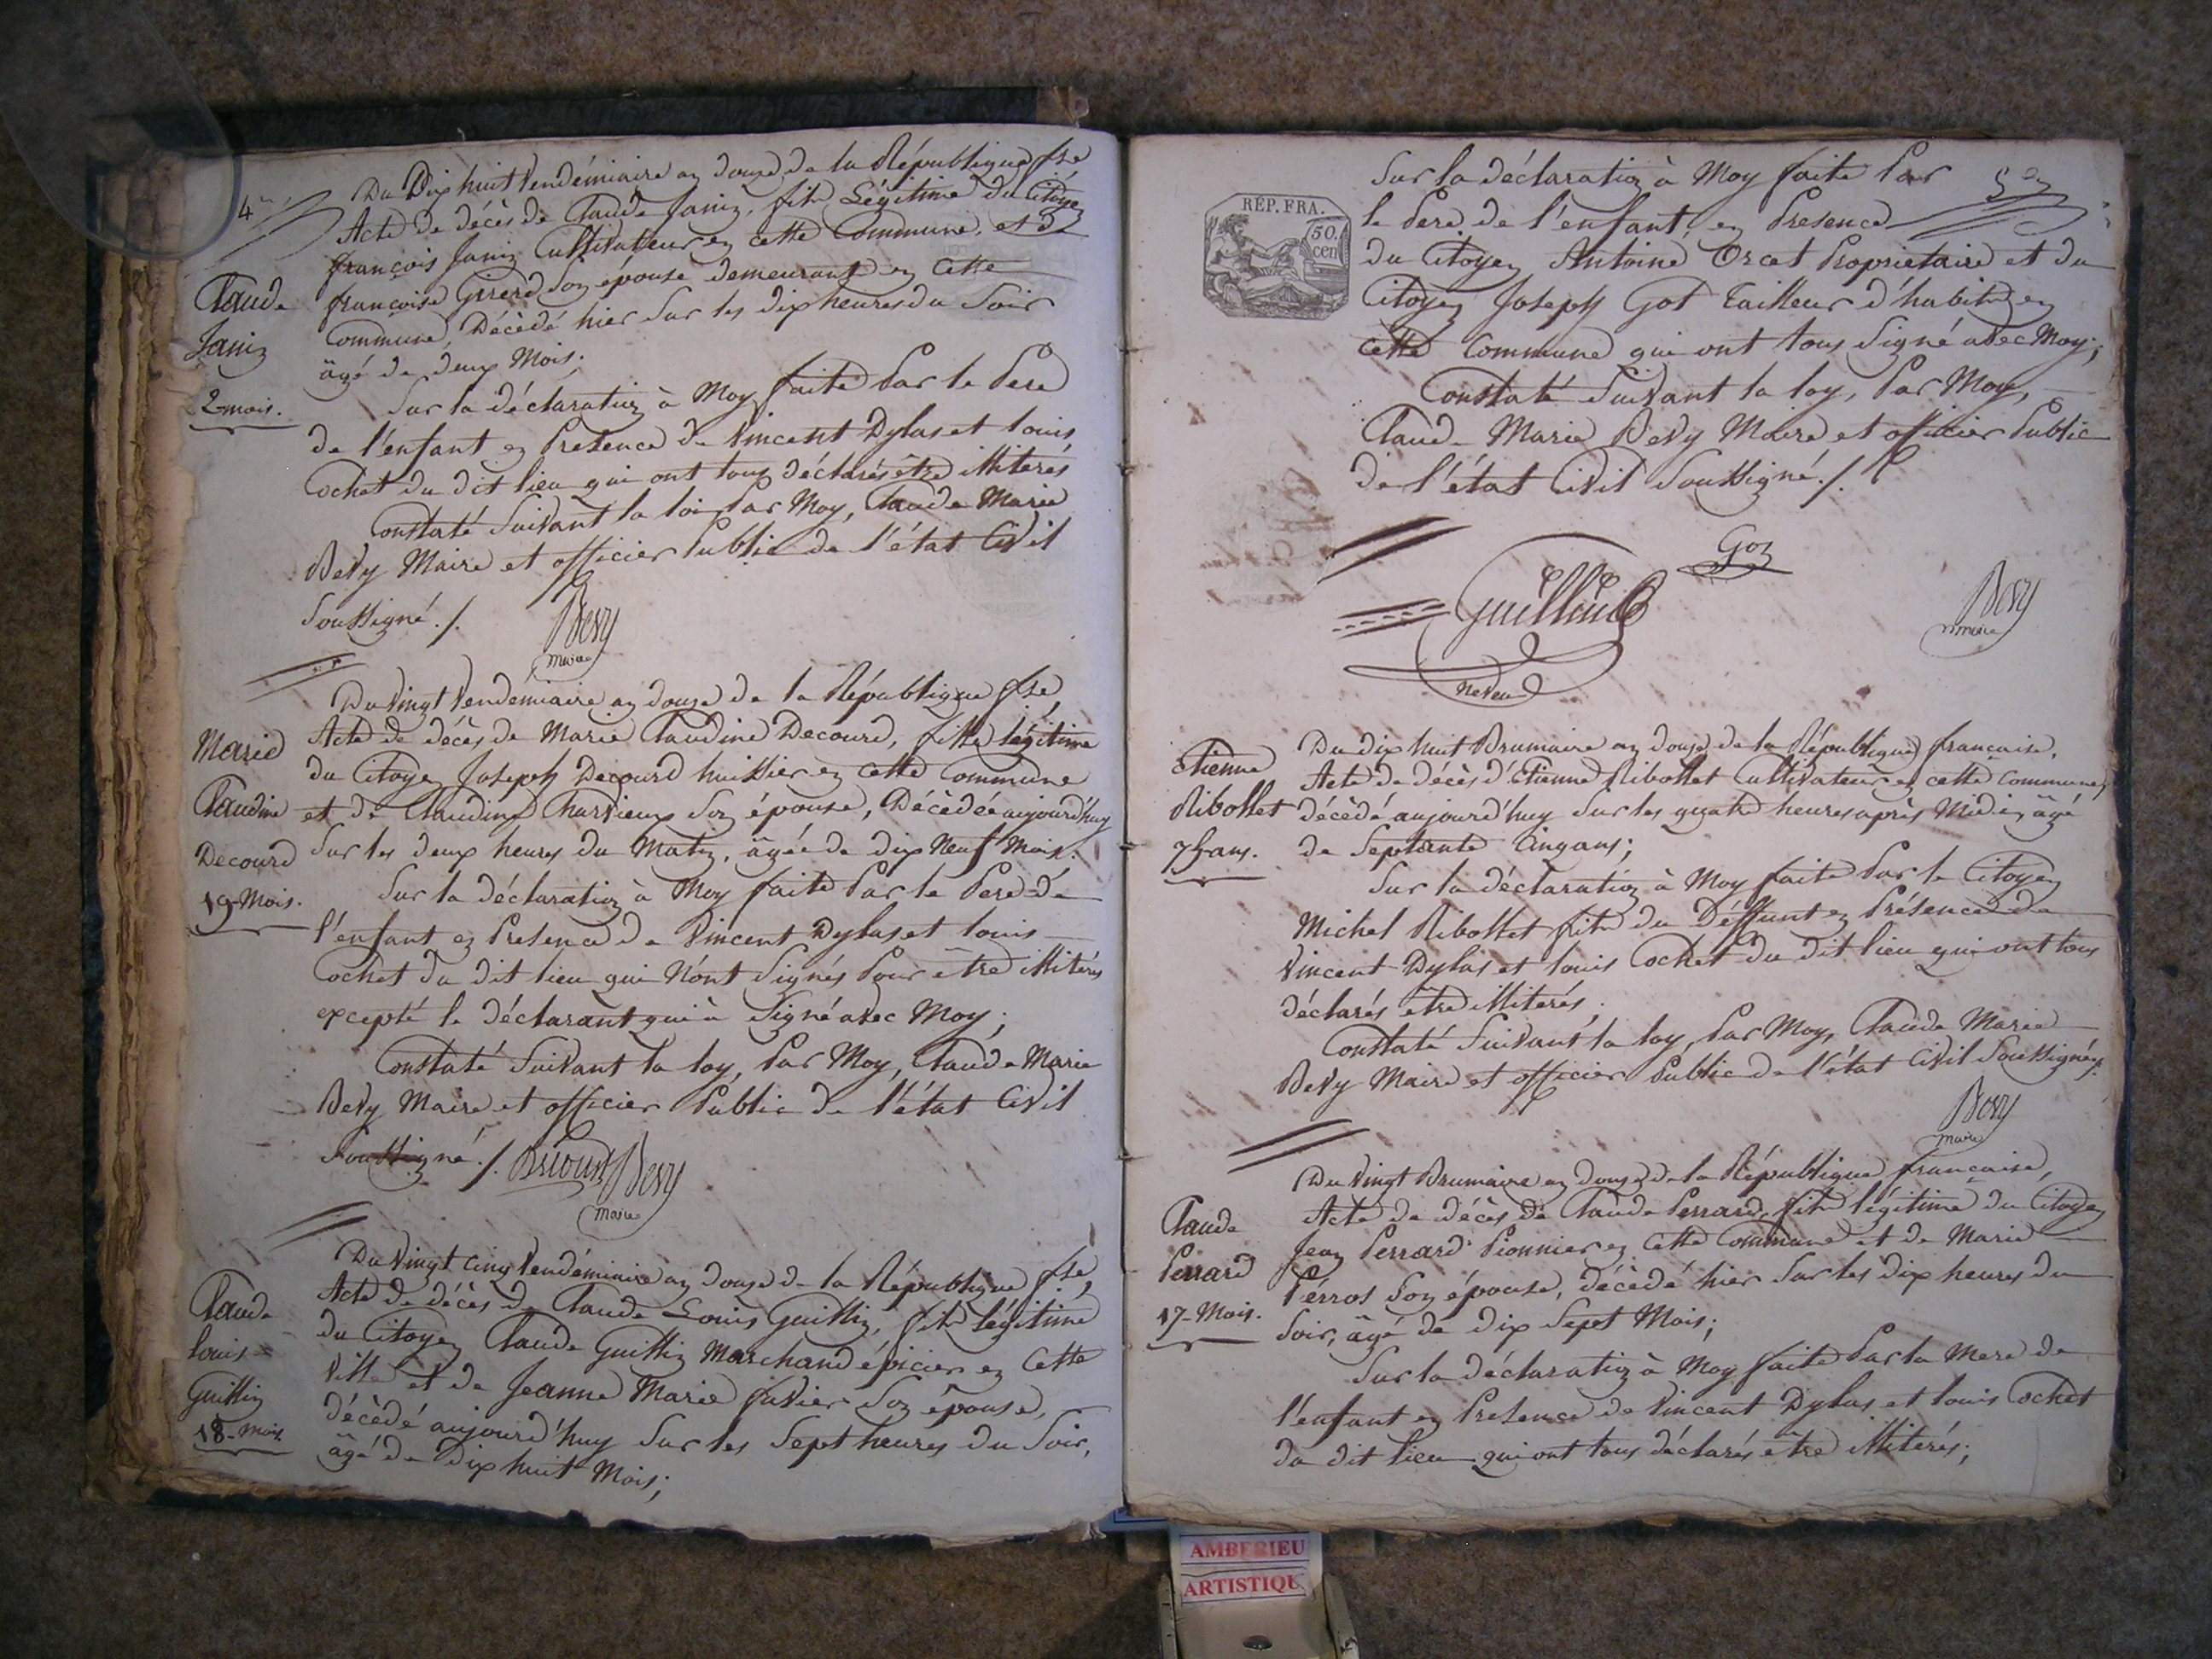 4me
Du Dix huit Vendémiaire an douze de la République fse
Acte de décès de Claude Janin, fils Légitime du Citoyen
françois Janin Cultivateur en cette Commune, et de
françoise Girerd son épouse demeurant en Cette
Commune, Décèdé hier sur les dix heures du Soir
âgé de deux Mois;
Claude
Janin
2 mois.
Sur la déclaration à Moy faite Par le Pere
de l'enfant en Presence de Vincent Dylas et Louis
Cochet du dit lieu qui ont tous déclarés être illiterés
Constaté Suivant la loi Par Moy, Claude Marie
Bevy Maire et officier Public de l'état Civil
Soussigné ./.
Bevy
maire
Du Vingt Vendémiaire an douze de la République fse,
Acte de décès de Marie Claudine Decourd, fille légitime
du Citoyen Joseph Decourd huissier en cette Commune
et de Claudine Charvieux son épouse, Décèdée aujourd'huy
Sur les deux heures du Matin, âgée de dix Neuf Mois.
Marie
Claudine
Decourd
19 Mois.
Sur la déclaration à Moy faite Par le Pere de
l'enfant en Presence de Vincent Dylas et Louis
Cochet du dit lieu qui N'ont Signés Pour être illiterés
excepté le déclarant qui à Signé avec Moy;
Constaté Suivant la loy, Par Moy, Claude Marie
Bevy Maire et officier Public de l'état Civil
Soussigné ./. Decourd Bevy
maire
Du Vingt Cinq Vendémiaire an douze de la République fse,
Acte de décès de Claude Louis Guillin, fils légitime
du Citoyen Claude Guillin Marchand épicier en Cette
Ville et de Jeanne Marie Juvier son épouse,
décèdé aujourd'huy Sur les Sept heures du Soir,
âgé de Dix huit Mois;
Claude
Louis
Guillin
18 Mois.
5me
RÉP. FRA.
50.
cen
Sur la déclaration à Moy faite Par
le Pere de l'enfant, en Presence
du Citoyen Antoine Orcet Propriétaire et du
Citoyen Joseph Got Tailleur d'habits en
cette Commune qui ont tous Signé avec Moy;
Constaté Suivant la loy, Par Moy,
Claude Marie Bevy Maire et officier Public
de l'état Civil Soussigné ./.
Got
Bevy
maire
neveu
Du dix huit Brumaire an douze de la République française.
Acte de décès d'Etienne Ribollet Cultivateur en cette Commune,
décèdé aujourd'huy Sur les quatre heures après Midi, âgé
de Septante Cinq ans;
Etienne
Ribollet
75 ans.
Sur la déclaration à Moy faite Par le Citoyen
Michel Ribollet fils du Déffunt en Présence de
Vincent Dylas et Louis Cochet du dit lieu qui ont tous
déclarés être illiterés;
Constaté Suivant la loy, Par Moy, Claude Marie
Bevy Maire et officier Public de l'état Civil Soussigné ./.
Bevy
maire
Du Vingt Brumaire an douze de la République française,
Acte de décès de Claude Perrard, fils légitime du Citoyen
Jean Perrard Pionnier en Cette Commune et de Marie
Perros son épouse, décèdé hier Sur les dix heures du
Soir, âgé de dix Sept Mois;
Claude
Perrard
17 Mois.
Sur la déclaration à Moy faite Par la Mere de
l'enfant en Presence de Vincent Dylas et Louis Cochet
du dit lieu qui ont tous déclarés être illiterés;
AMBERIEU
ARTISTIQU